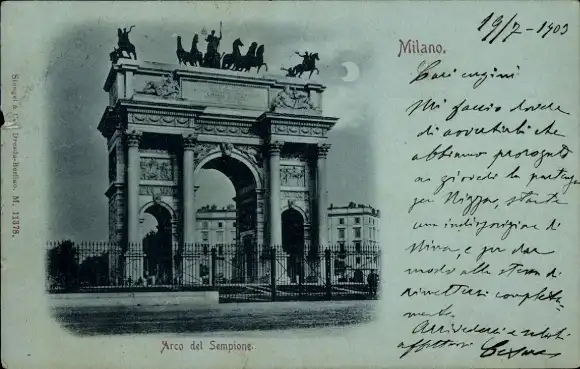 Milano.
19/7 - 1903
Cari cugini
Mi faccio dovere
di avvertirvi che
abbiamo prorogato
a giovedì la partenza
per Nizza, stante
una indisposizione di
Nina, e per dar
modo alla stessa di
rimettersi completa-
mente.
Arrivederci e saluti
affettuosi
Stengel & Co., Dresda-Berlino. M. 11378.
Arco del Sempione.